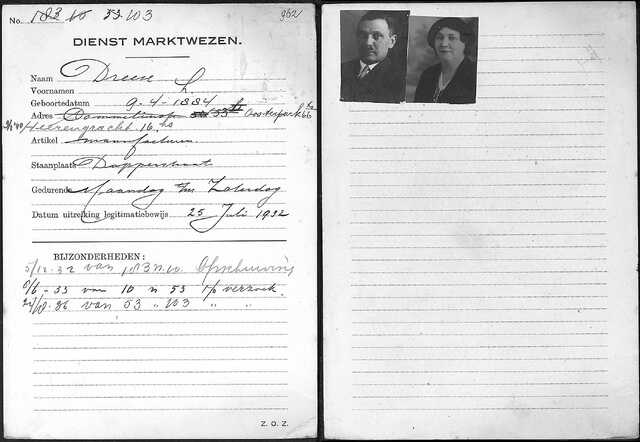 No. 183 60 53 103 362
DIENST MARKTWEZEN.
Naam Dreese
Voornamen L.
Geboortedatum 9-4-1884
Adres 53 hs Oosterpark 66 hs
Heerengracht 16 hs
Artikel manufacturen
Staanplaats Dapperstraat
Gedurende Maandag t/m Zaterdag
Datum uitreiking legitimatiebewijs 25 Juli 1932
BIJZONDERHEDEN:
5/12-32 van 183 n. 10. Opschuiving
8/6-33 van 10 n 53 o/p verzoek.
24/10-36 van 53 " 103 " "
Z. O. Z.